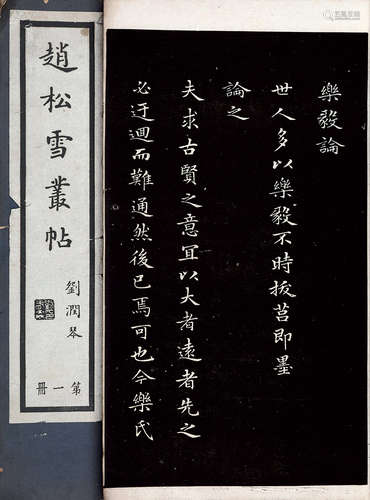 樂毅論
世人多以樂毅不時拔莒即墨
論之
夫求古賢之意宜以大者遠者先之
必迂迴而難通然後已焉可也今樂氏
趙松雪叢帖
劉潤琴
第一冊